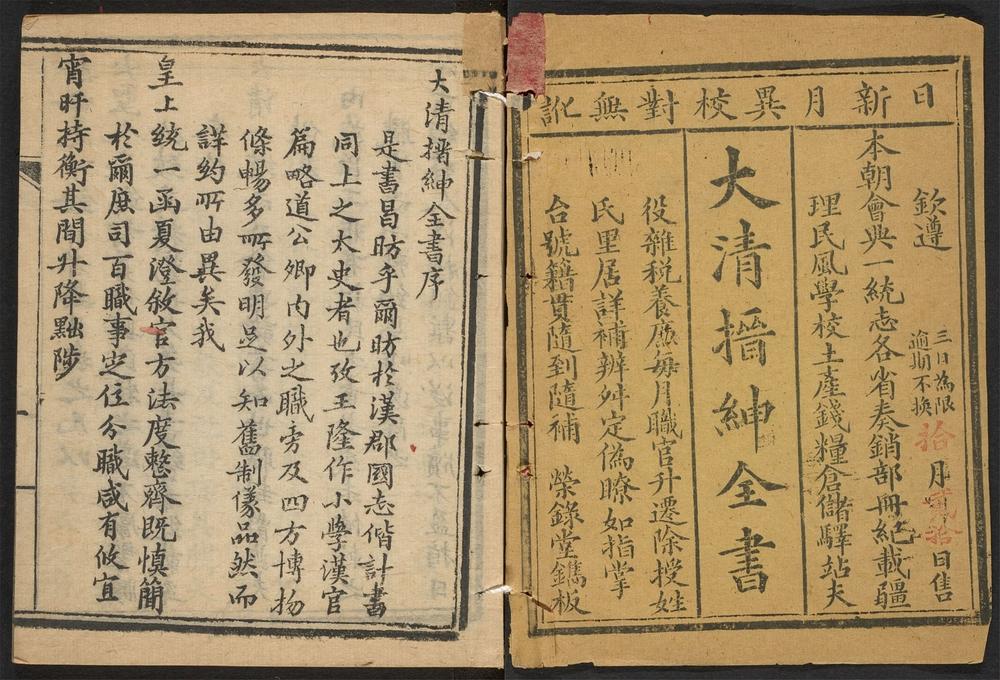 日新月異校對無訛
欽遵
三日為限
逾期不換
拾月貳拾日售
本朝會典一統志各省奏銷部冊紀載疆
理民風學校土產錢糧倉儲驛站夫
大清搢紳全書
役雜稅養廉每月職官升遷除授姓
氏里居詳補辨舛定偽瞭如指掌
台號籍貫隨到隨補 榮錄堂鐫板
大清搢紳全書序
是書昌昉乎爾昉於漢郡國志偕計書
同上之太史者也攷王隆作小學漢官
篇略道公卿內外之職旁及四方博物
條暢多所發明足以知舊制儀品然而
詳約所由異矣我
皇上統一函夏澄敘官方法度整齊既慎簡
於爾庶司百職事定位分職咸有攸宜
宵旰持衡其間升降黜陟